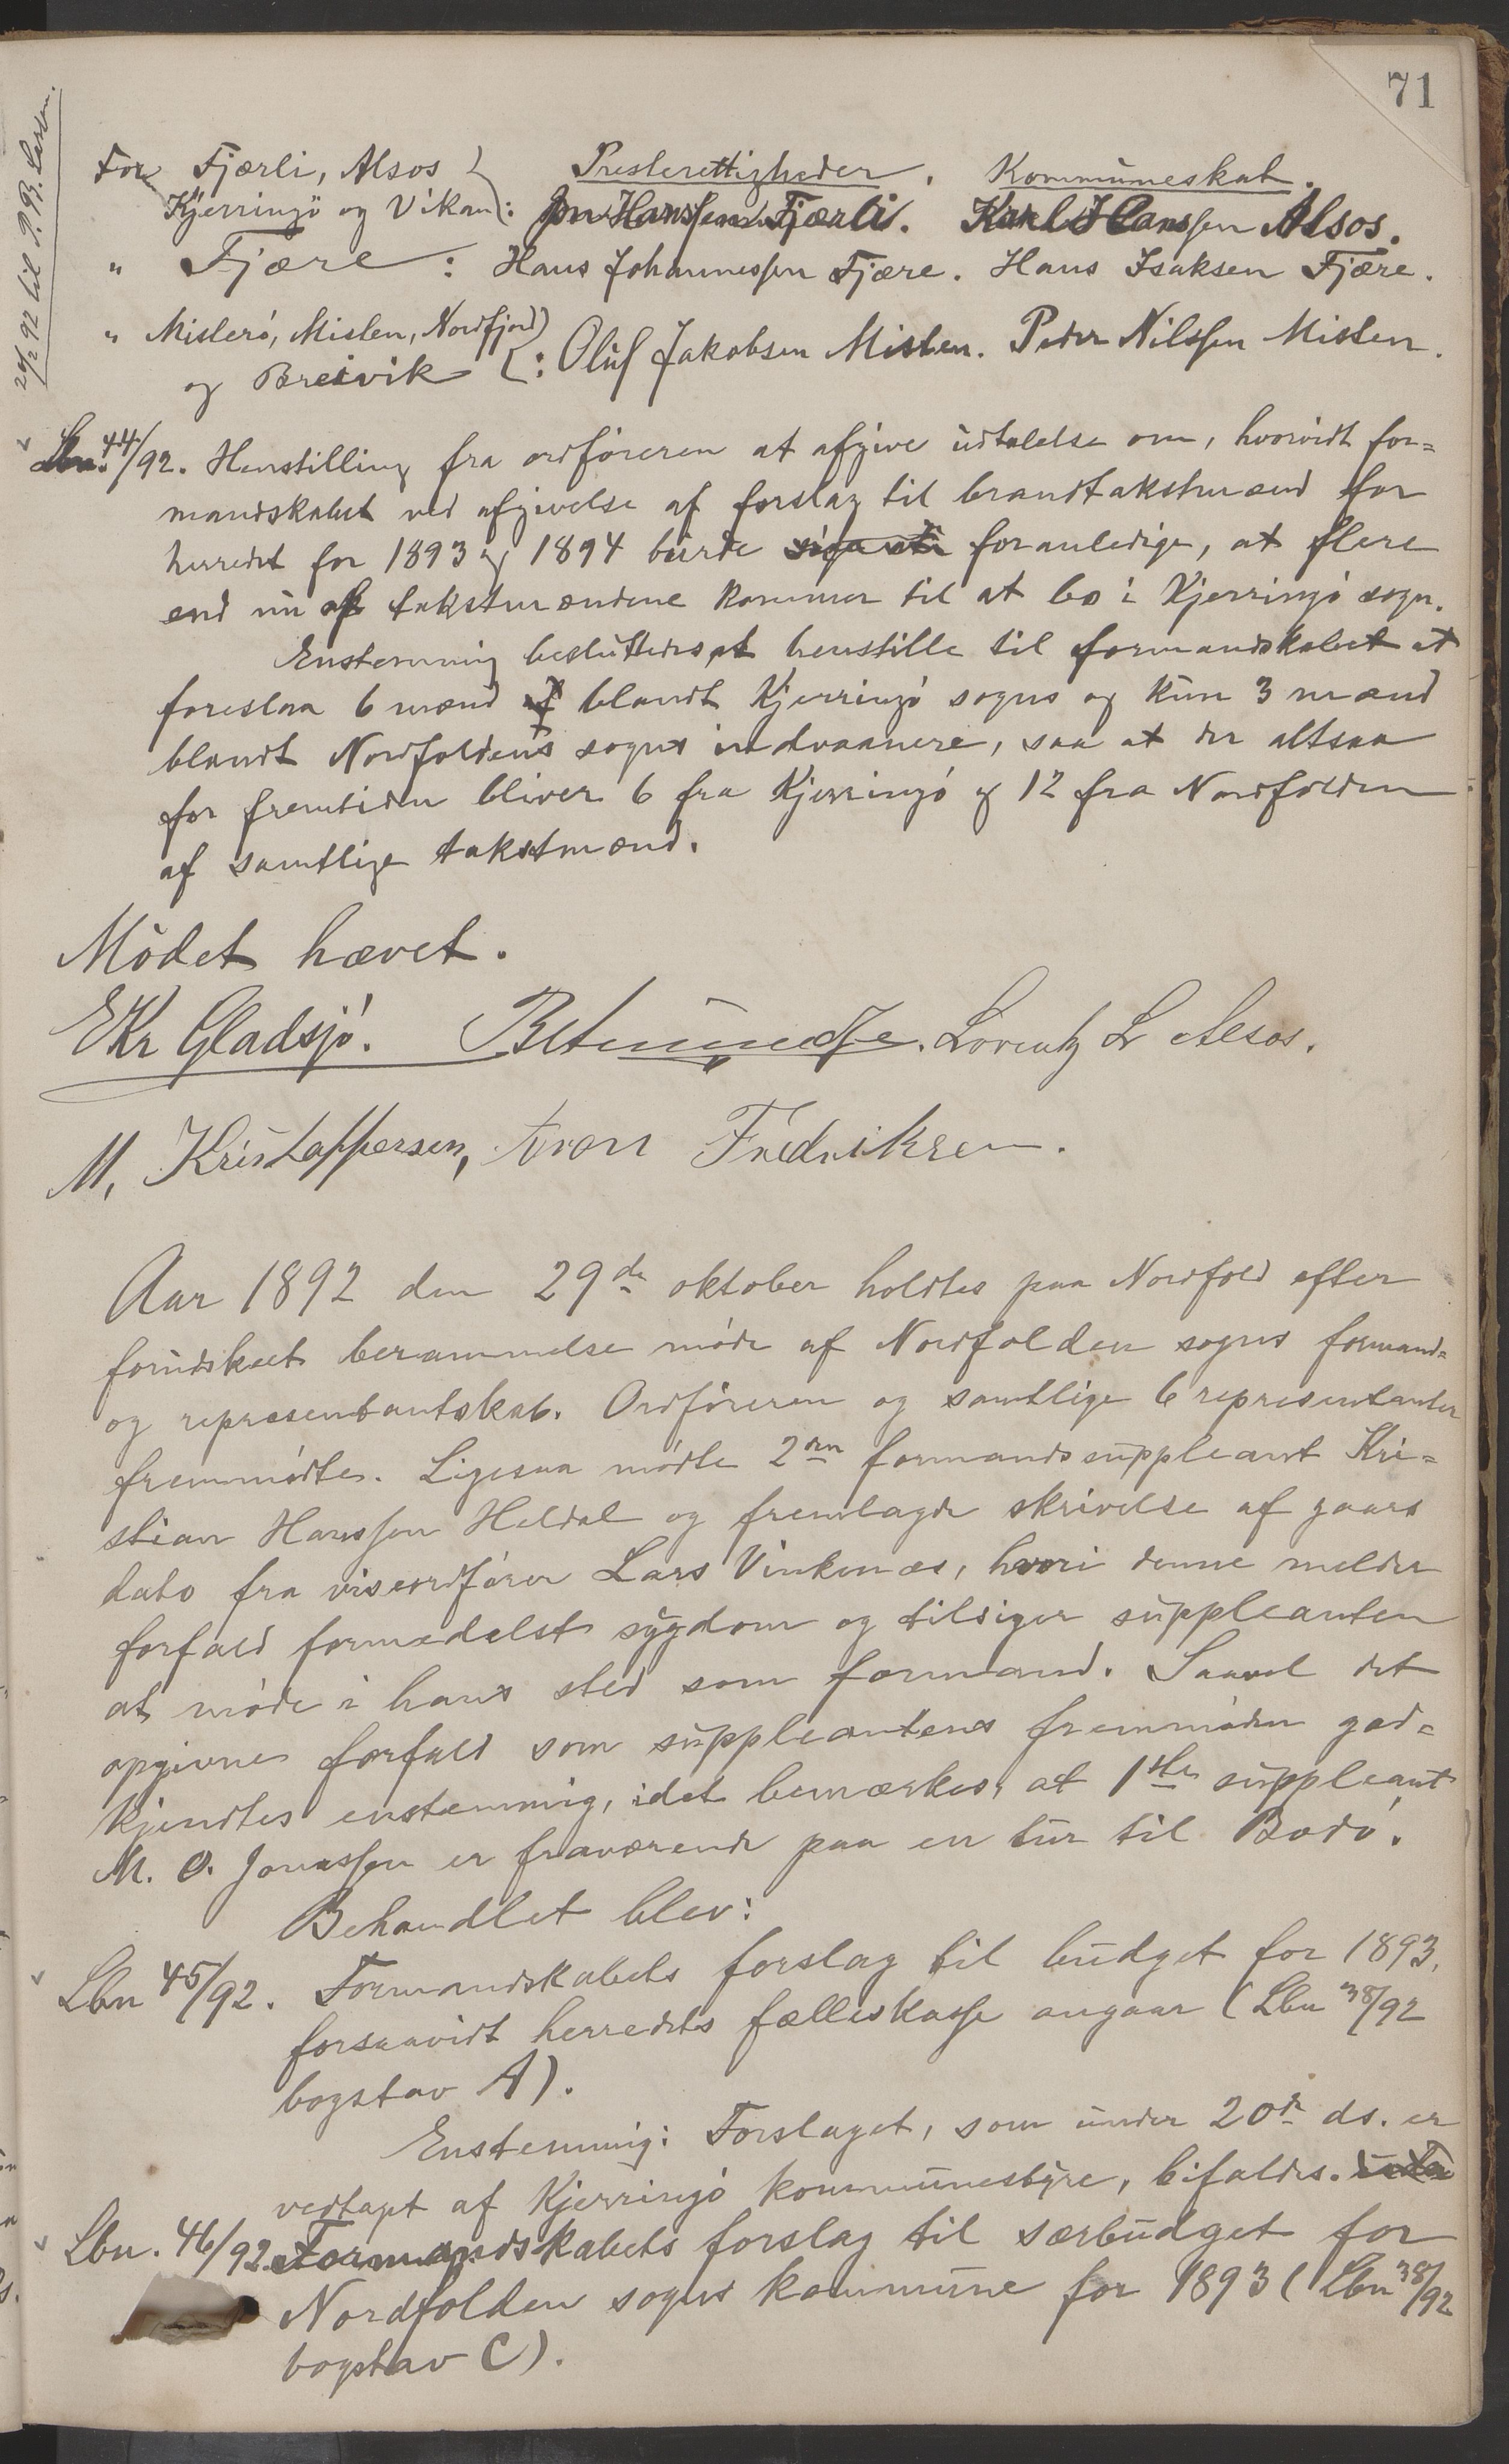 71
For Fjærli, Alsos } Presterettigheder. Kommuneskat.
Kjerringö og Vikan: Jon Hanssen Fjærli. Karl J Hanssen Alsos.
" Fjære: Hans Johannessen Fjære. Hans Isaksen Fjære.
" Misterö, Misten, Nordfjord }
og Breivik : Oluf Jakobsen Misten. Peder Nilssen Misten.
Lbn. 44/92. Henstilling fra ordföreren at afgive udtalelse om, hvorvidt for-
mandskabet ved afgivelse af forslag til brandtakstmænd for
herredet for 1893 og 1894 burde foranledige, at flere
end nu af takstmændene kommer til at bo i Kjerringö sogn.
Enstemmig besluttedes at henstille til formandskabet at
foreslaa 6 mænd blandt Kjerringö sogns og kun 3 mænd
blandt Nordfoldens sogns indvaanere, saa at der altsaa
for fremtiden bliver 6 fra Kjerringö og 12 fra Nordfolden
af samtlige takstmænd.
Mödet hævet.
EKr Gladsjö. Lorentz L Alsos.
M. Kristoffersen, Aron Fredriksen.
Aar 1892 den 29de oktober holdtes paa Nordfold efter
forudskeet berammelse möde af Nordfolden sogns formand-
og repræsentantskab. Ordföreren og samtlige 6 repræsentanter
fremmödte. Ligesaa mödte 2den formandssuppleant Kri-
stian Hanssen Heldal og fremlagde skrivelse af gaars
dato fra viseordförer Lars Vinkenæs, hvori denne melder
forfald formedelst sygdom og tilsiger suppleanten
at möde i hans sted som formand. Saavel det
opgivne forfald som suppleantens fremmöden god-
kjendtes enstemmig, idet bemærkes, at 1ste suppleant
M. O. Jonassen er fraværende paa en tur til Bodö.
Behandlet blev:
Lbn 45/92. Formandskabets forslag til budget for 1893,
forsaavidt herredets fælleskasse angaar (Lbn 38/92
bogstav A).
Enstemmig: Forslaget, som under 20de ds. er
vedtaget af Kjerringö kommunestyre, bifaldes.
Lbn. 46/92. Formandskabets forslag til særbudget for
Nordfolden sogns kommune for 1893 (Lbn 38/92
bogstav C).